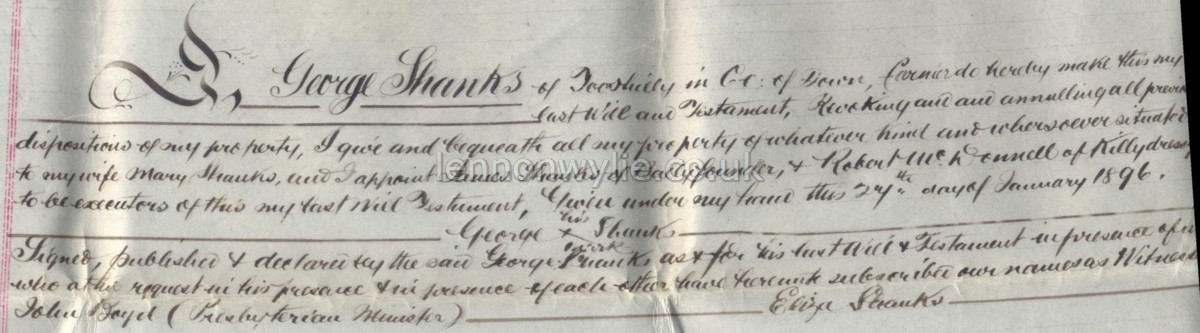 I, George Shanks of Tooshilly in Co: of Down, Farmer do hereby make this my
last Will and Testament, Revoking and and annulling all previous
dispositions of my property, I give and bequeath all my property of whatever kind and wheresoever situated
to my wife Mary Shanks, and I appoint James Shanks of Ballyfounder, & Robert McDonnell of Killydressy
to be executors of this my last Will Testament, Given under my hand this 24th day of January 1896.
his
George x Shanks
mark
Signed, published & declared by the said George Shanks as & for his last Will & Testament in presence of us
who at his request in his presence & in presence of each other have hereunto subscribed our names as Witnesses
John Boyd (Presbyterian Minister) Eliza Shanks
lennonwylie.co.uk